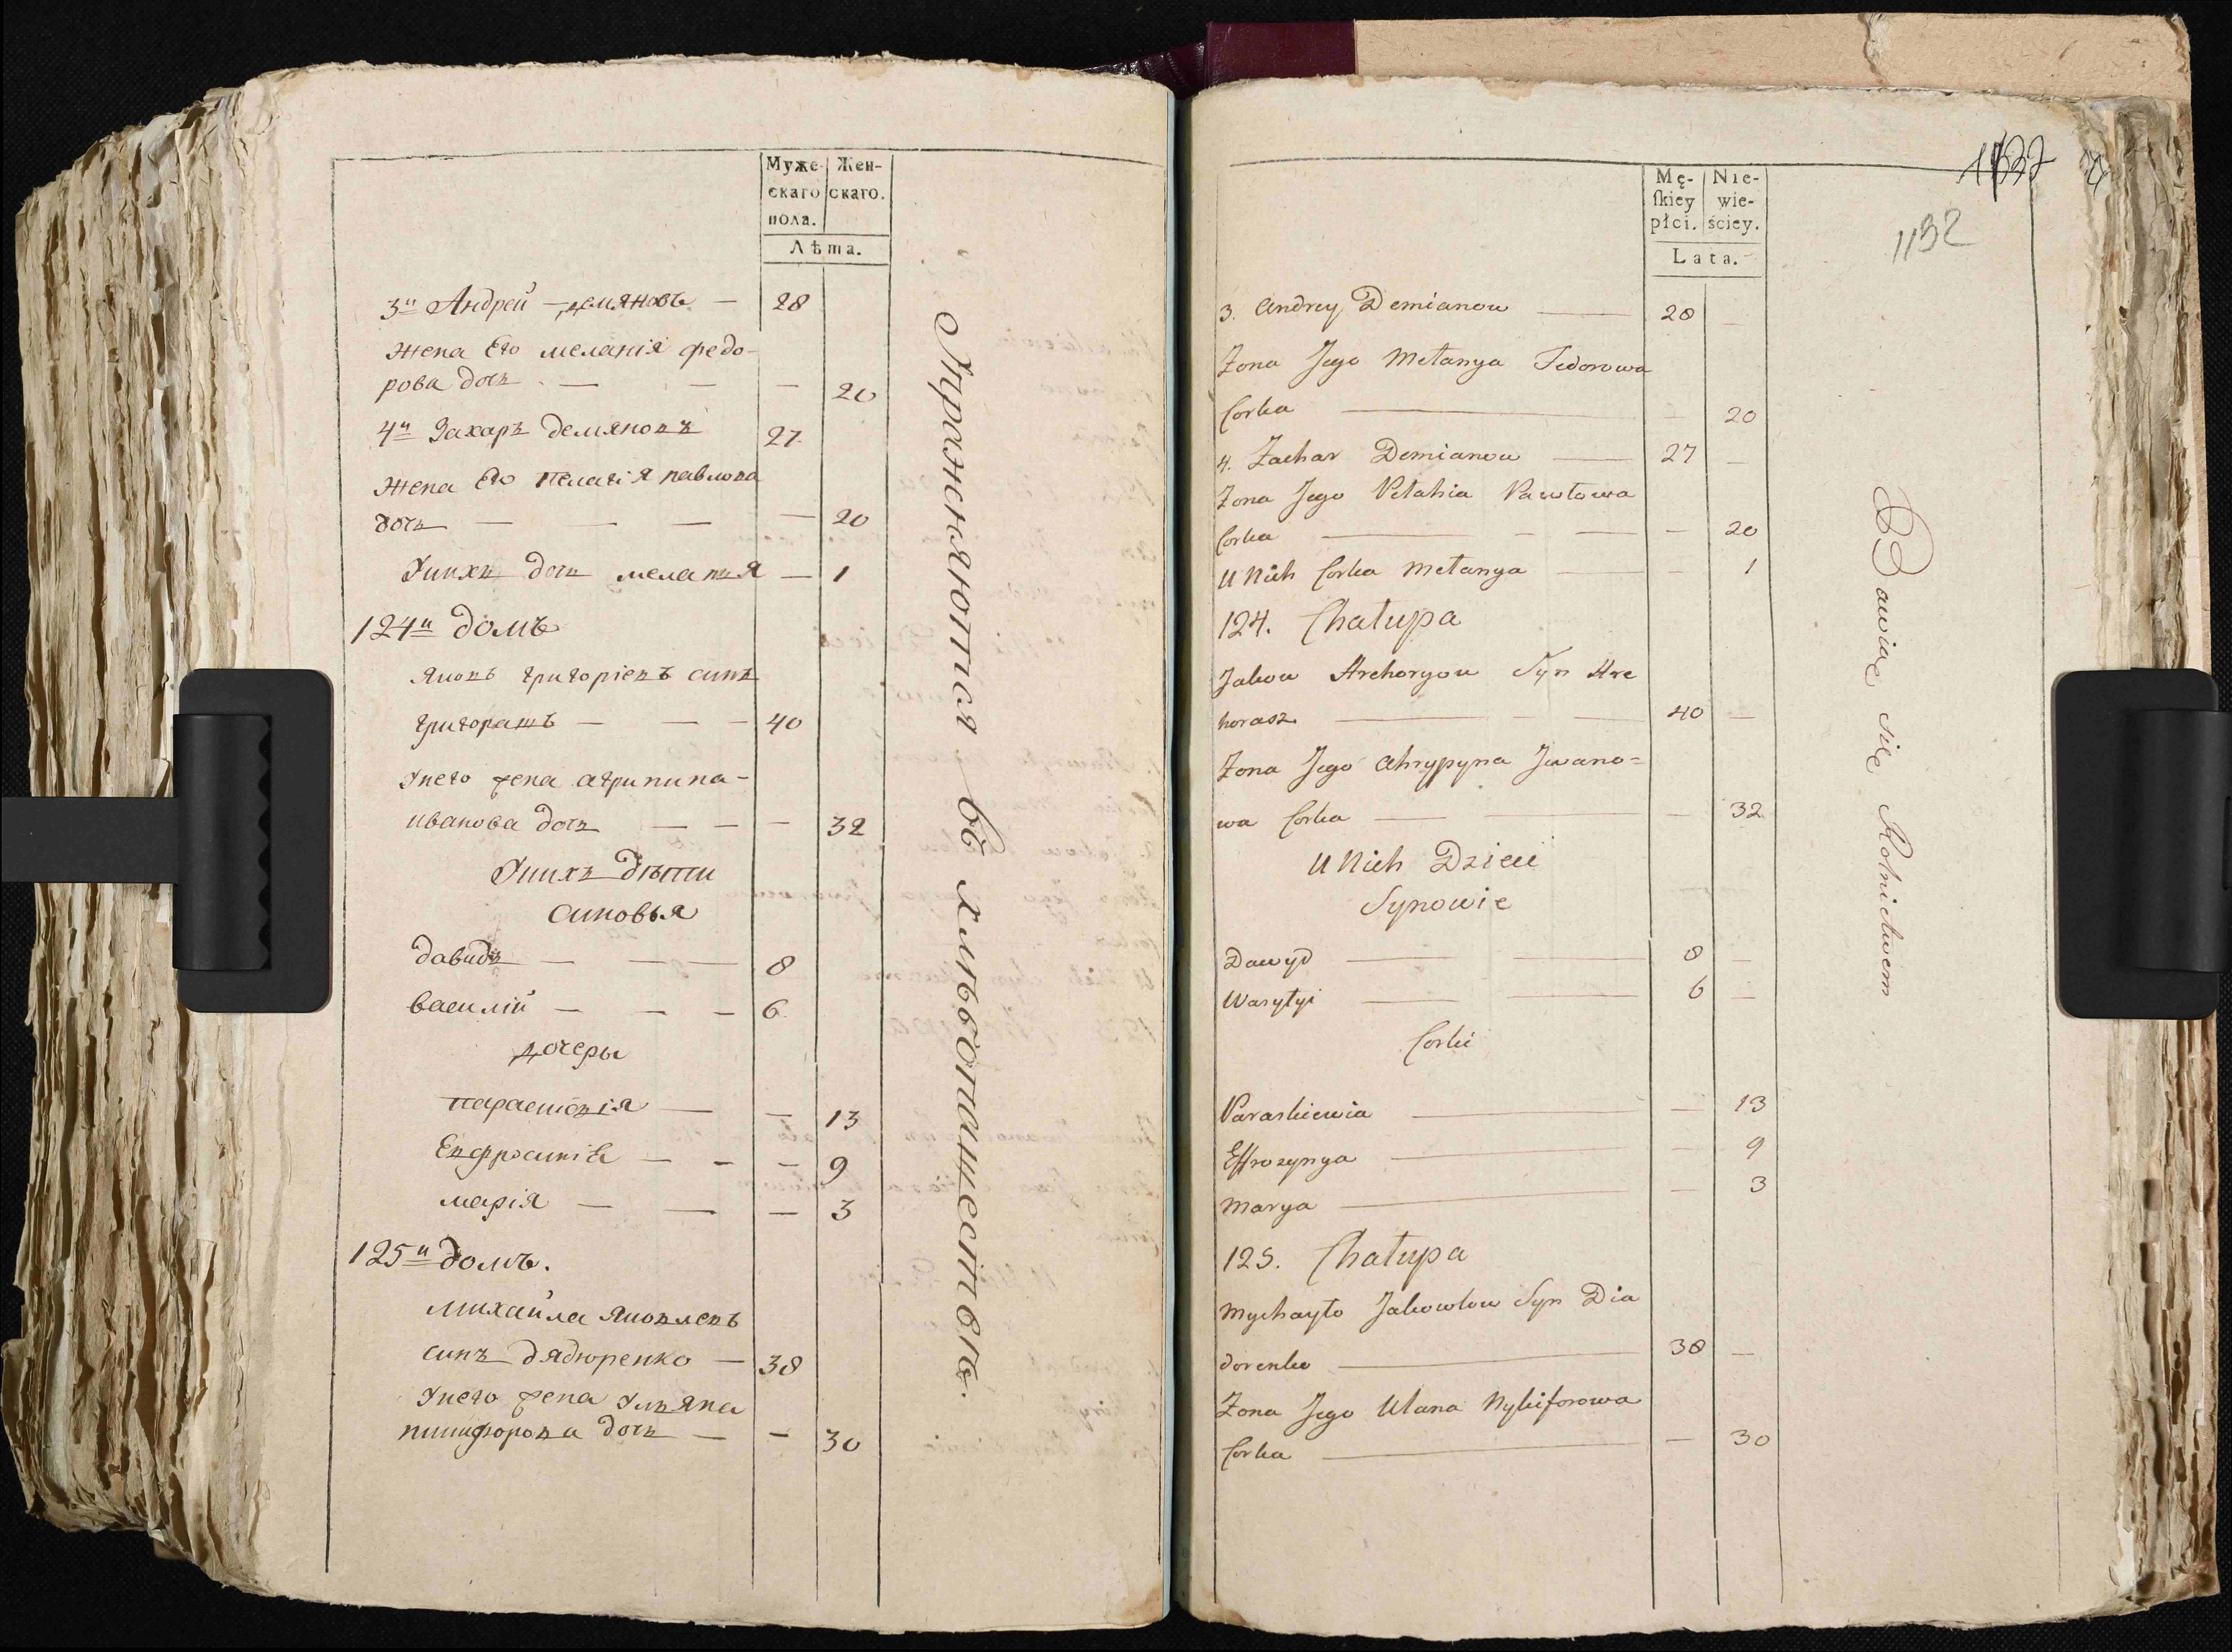 Муже- Жен-
скаго скаго.
пола.
Лѣта.
3й Андрей — демяновъ — 28
жена Его меланія федо-
рова дочь — — — 20
4й Захаръ демяновъ 27
жена Его пелагія павлова
дочь — — — — 20
Унихъ дочь меланья — 1
124й домъ
яковъ григоріевъ синъ
григорашъ — — — 40
Унего жена агрипина-
иванова дочь — — — 32
Унихъ дѣти
синовья
давидъ — — — 8
василій — — — 6
дочеры
параскѣвія — — 13
Евфросинія — — — 9
марія — — — 3
125й домъ.
михайла яковлевъ
синъ дядюренко — 38
Унего жена Ульяна
никифорова дочь — — 30
Упражняются въ хлѣбопашествѣ.
1132
1132
Mę- Nie-
ſkiey wie-
płci. ściey.
Lata.
3. Andrey Demianow — 28 —
Żona Jego Mełanya Fedorowa
Corka — 20
4. Zachar Demianow — 27 —
Żona Jego Pełahia Pawłowa
Corka — — — — 20
U Nich Corka Mełanya — — 1
124. Chałupa
Jakow Hrehoryow Syn Hre
horasz — — — 40 —
Żona Jego Ahrypyna Jwano=
wa Corka — — — 32
U Nich Dzieci
Synowie
Dawyd — — 8 —
Wasylyi — — 6 —
Corki
Paraskiewia — — 13
Effrozynya — — 9
Marya — — 3
125. Chałupa
Mychayło Jakowlow Syn Dia
dorenko — 38 —
Żona Jego Ulana Nykiforowa
Corka — — 30
Bawią się Rolnictwem